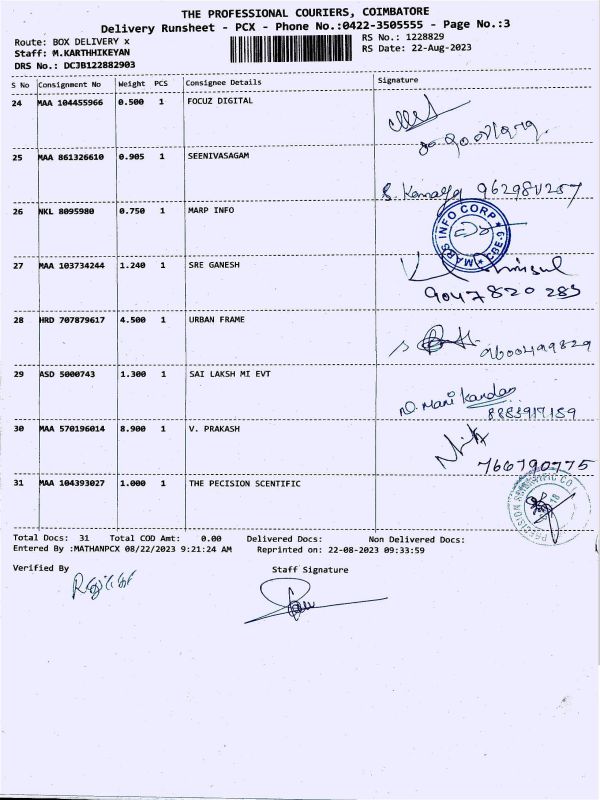 THE PROFESSIONAL COURIERS, COIMBATORE
Delivery Runsheet - PCX - Phone No.:0422-3505555 - Page No.:3
Route: BOX DELIVERY x
RS No.: 1228829
Staff: M.KARTHHIKEYAN
RS Date: 22-Aug-2023
DRS No.: DCJB122882903
S No Consignment No Weight PCS Consignee Details Signature
24 MAA 104455966 0.500 1 FOCUZ DIGITAL
25 MAA 861326610 0.905 1 SEENIVASAGAM
26 NKL 8095980 0.750 1 MARP INFO
MARS INFO CORP
27 MAA 103734244 1.240 1 SRE GANESH
9047820 283
28 HRD 707879617 4.500 1 URBAN FRAME
9600499829
29 ASD 5000743 1.300 1 SAI LAKSH MI EVT
D. Mani Kandan
30 MAA 570196014 8.900 1 V. PRAKASH
766790775
31 MAA 104393027 1.000 1 THE PECISION SCENTIFIC
Total Docs: 31 Total COD Amt: 0.00 Delivered Docs: Non Delivered Docs:
Entered By :MATHANPCX 08/22/2023 9:21:24 AM Reprinted on: 22-08-2023 09:33:59
Verified By
Staff Signature